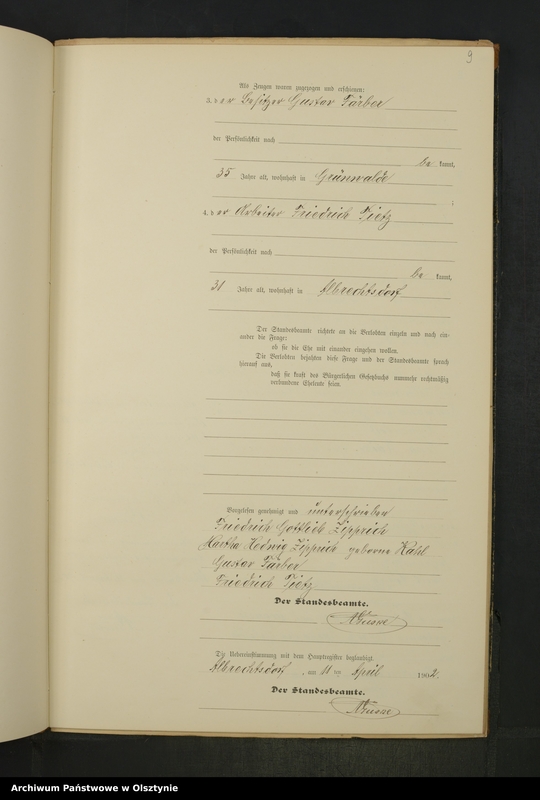 9
Als Zeugen waren zugezogen und erschienen:
3. der Besitzer Gustav Färber
der Persönlichkeit nach
be kannt,
35 Jahre alt, wohnhaft in Grünwalde
;
4. der Arbeiter Friedrich Tietz
der Persönlichkeit nach
be kannt,
31 Jahre alt, wohnhaft in Albrechtsdorf
Der Standesbeamte richtete an die Verlobten einzeln und nach ein-
ander die Frage:
ob sie die Ehe mit einander eingehen wollen.
Die Verlobten bejahten diese Frage und der Standesbeamte sprach
hierauf aus,
daß sie kraft des Bürgerlichen Gesetzbuchs nunmehr rechtmäßig
verbundene Eheleute seien.
Vorgelesen, genehmigt und unterschrieben
Friedrich Gottlieb Zipprich
Hedwig Zipprich geborne
Gustav Färber
Friedrich Tietz
Der Standesbeamte.
Die Uebereinstimmung mit dem Hauptregister beglaubigt.
Albrechtsdorf, am 11 ten April 1902.
Der Standesbeamte.
Archiwum Państwowe w Olsztynie